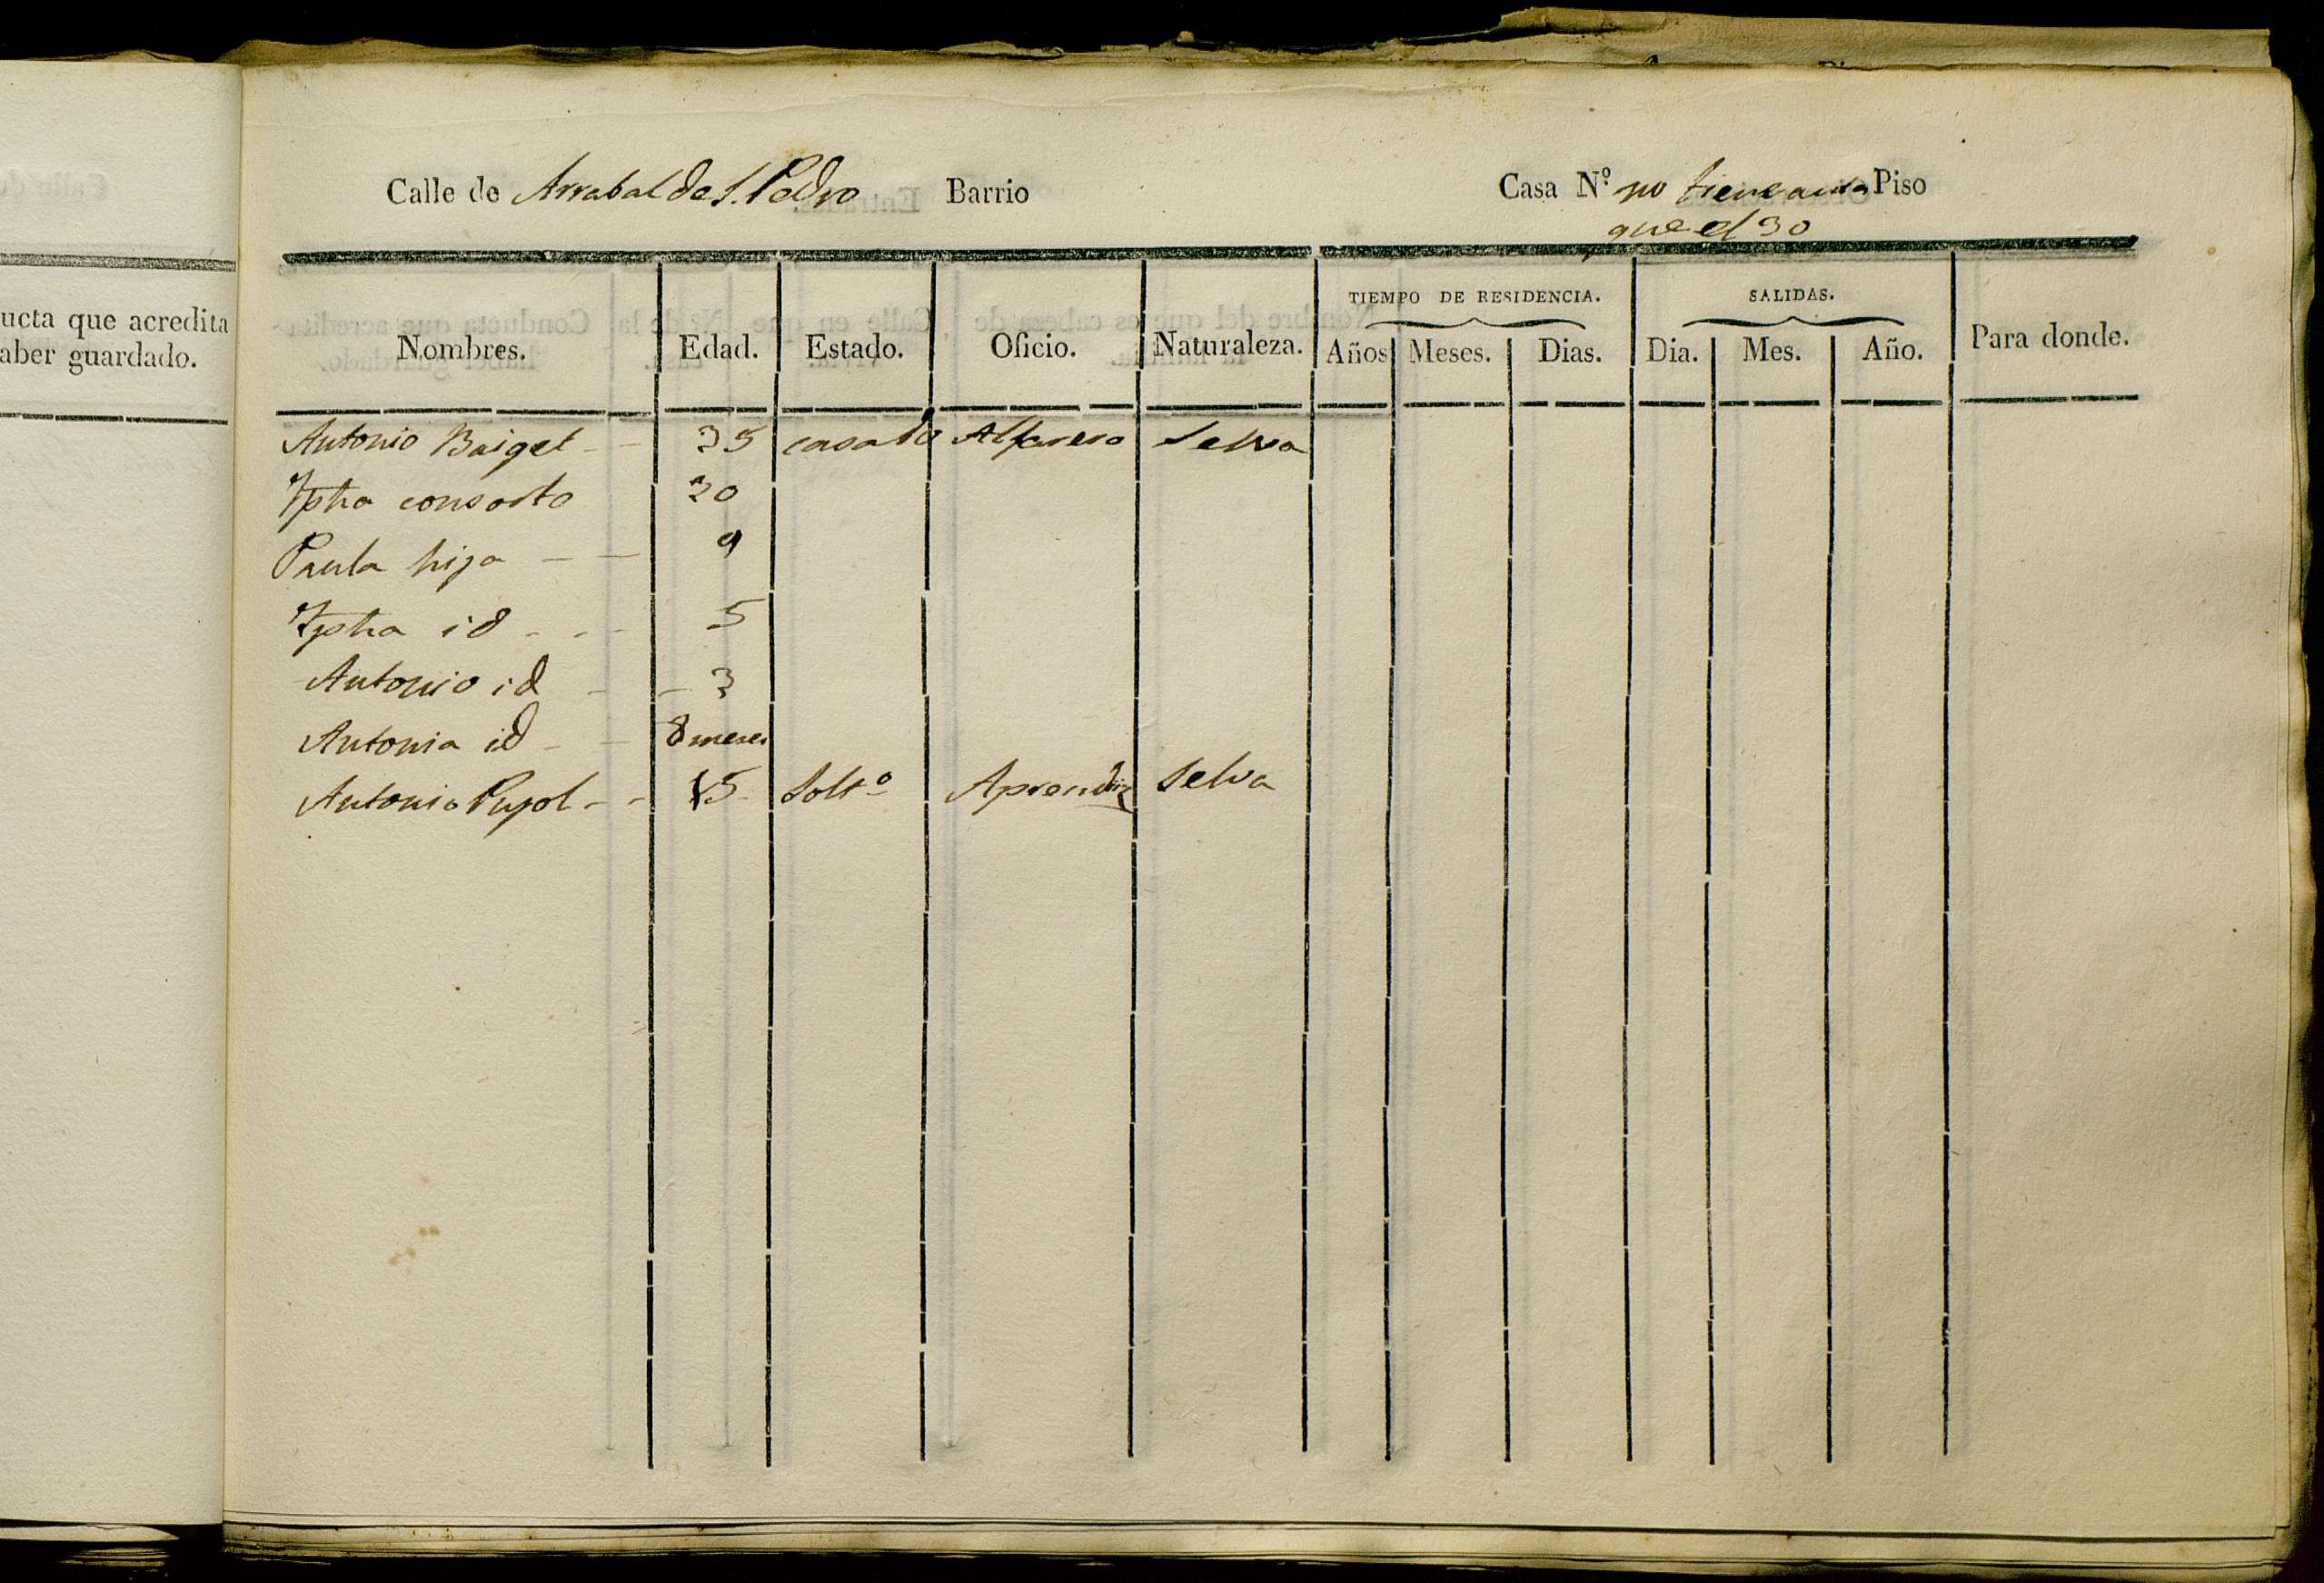 ucta que acredita
aber guardado.
Calle de Arrabal de S. Pedro Barrio Casa N.º no tiene Piso
que el 30
TIEMPO DE RESIDENCIA. SALIDAS.
Nombres. Edad. Estado. Oficio. Naturaleza. Años Meses. Dias. Dia. Mes. Año. Para donde.
Antonio Baiget - - 35 casado Alfarero Selva
Jpha consorte 30
Paula hija - - 9
Jpha id - - - 5
Antonio id - - 3
Antonia id - - 8 meses
Antonio Pujol - - 15 Solt.º Aprendiz Selva